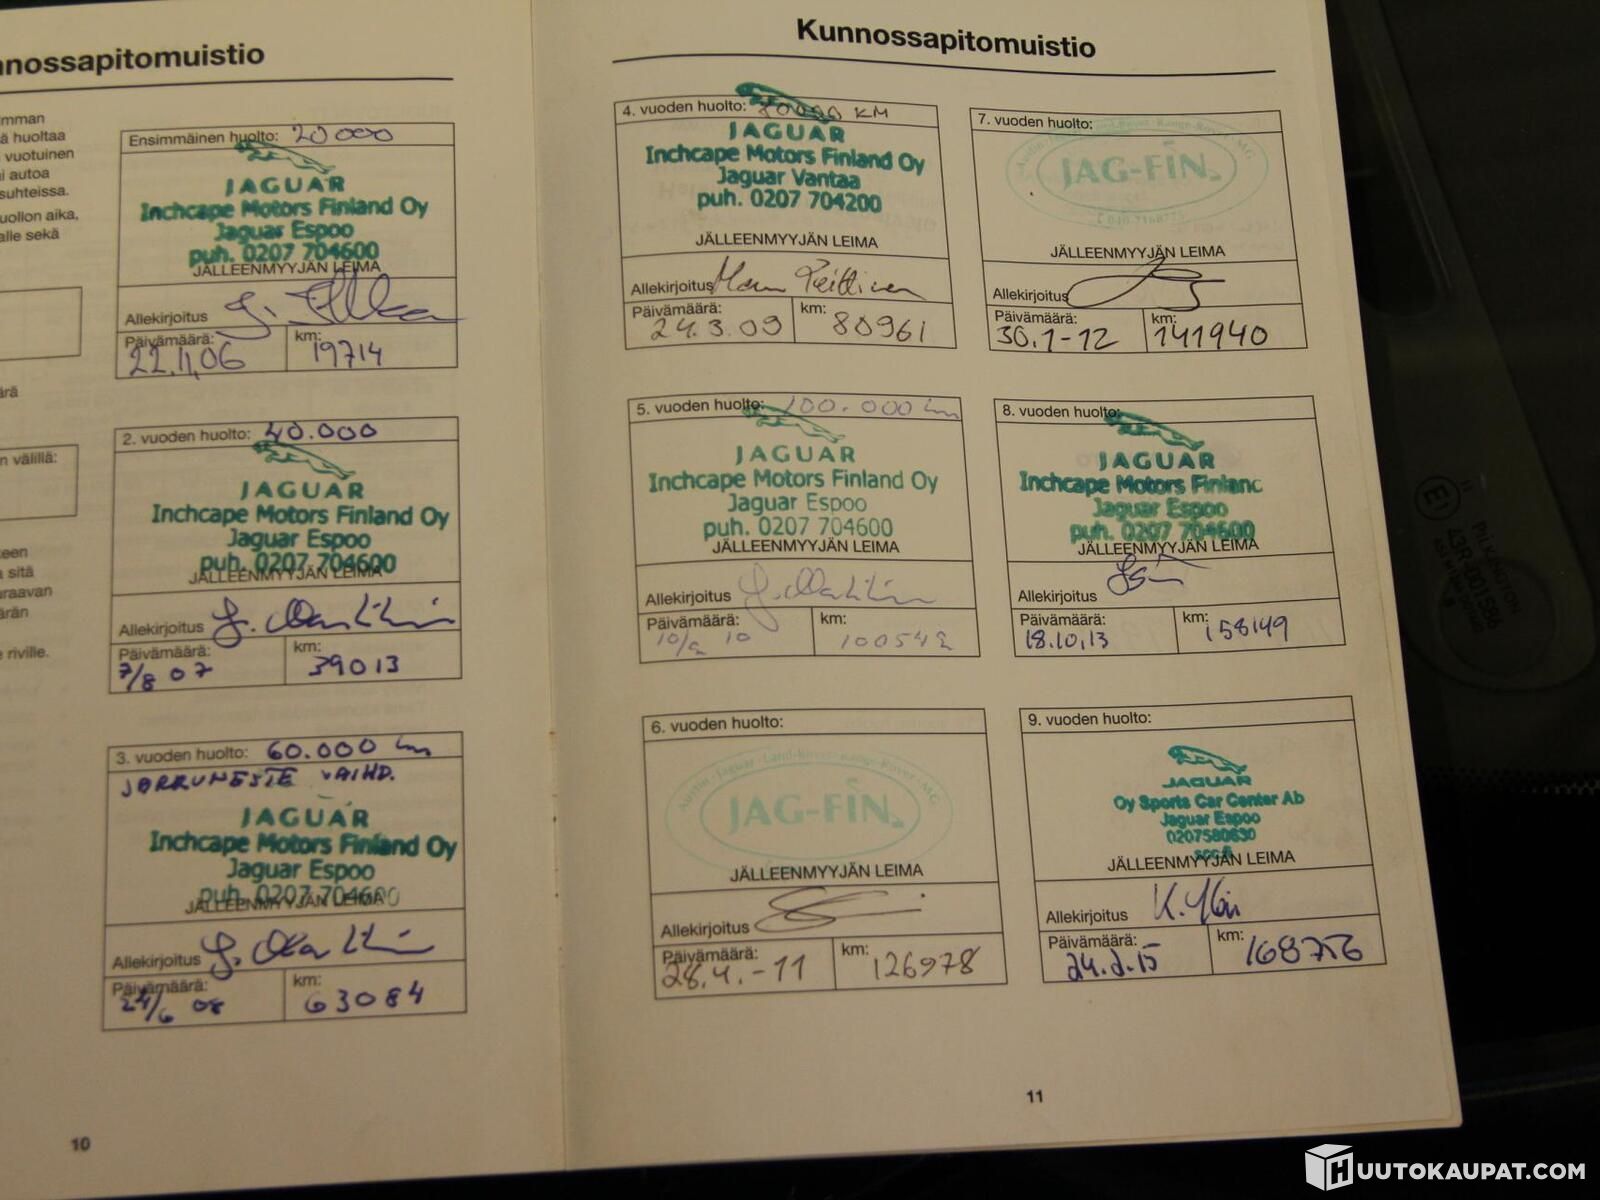 nnossapitomuistio
imman
ä huoltaa
vuotuinen
i autoa
suhteissa.
uollon aika,
alle sekä
ärä
n välillä:
een
a sitä
uraavan
ärän
e riville.
Ensimmäinen huolto: 20000
JAGUAR
Inchcape Motors Finland Oy
Jaguar Espoo
puh. 0207 704600
JÄLLEENMYYJÄN LEIMA
Allekirjoitus
Päivämäärä: km:
22.11.06 19714
2. vuoden huolto: 40.000
JAGUAR
Inchcape Motors Finland Oy
Jaguar Espoo
puh. 0207 704600
JÄLLEENMYYJÄN LEIMA
Allekirjoitus
Päivämäärä: km:
7/8 07 39013
3. vuoden huolto: 60.000 km
JARRUNESTE VAIHD.
JAGUAR
Inchcape Motors Finland Oy
Jaguar Espoo
puh. 0207 704600
JÄLLEENMYYJÄN LEIMA
Allekirjoitus
Päivämäärä: km:
24/6 08 63084
10
Kunnossapitomuistio
4. vuoden huolto: 80000 KM
JAGUAR
Inchcape Motors Finland Oy
Jaguar Vantaa
puh. 0207 704200
JÄLLEENMYYJÄN LEIMA
Allekirjoitus
Päivämäärä: km:
24.3.09 80961
5. vuoden huolto: 100.000 km
JAGUAR
Inchcape Motors Finland Oy
Jaguar Espoo
puh. 0207 704600
JÄLLEENMYYJÄN LEIMA
Allekirjoitus
Päivämäärä: km:
10 100542
6. vuoden huolto:
Austin-Jaguar-Land-Rover-Range-Rover-MG
JAG-FIN
JÄLLEENMYYJÄN LEIMA
Allekirjoitus
Päivämäärä: km:
28.4.-11 126978
7. vuoden huolto:
Range-Rover-MG
JAG-FIN
JÄLLEENMYYJÄN LEIMA
Allekirjoitus
Päivämäärä: km:
30.1-12 141940
8. vuoden huolto:
JAGUAR
Inchcape Motors Finlanc
Jaguar Espoo
puh. 0207 704600
JÄLLEENMYYJÄN LEIMA
Allekirjoitus
Päivämäärä: km:
18.10.13 158149
9. vuoden huolto:
JAGUAR
Oy Sports Car Center Ab
Jaguar Espoo
0207580630
JÄLLEENMYYJÄN LEIMA
Allekirjoitus
Päivämäärä: km:
24.2.15 168756
11
E1
PILKINGTON
43R-001586
HUUTOKAUPAT.COM